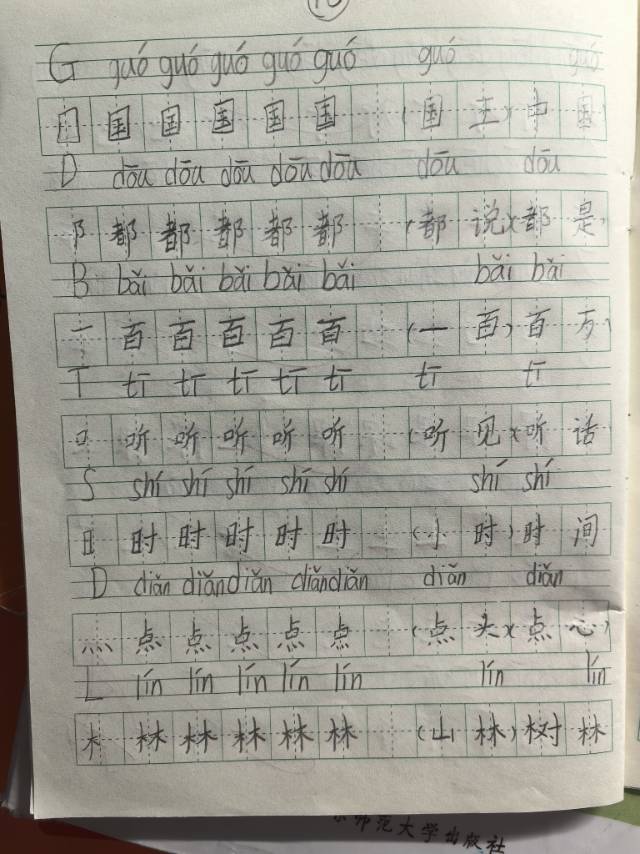 10
G guó guó guó guó guó guó guó
囗 国 国 国 国 国 (国 王)(中 国)
D dōu dōu dōu dōu dōu dōu dōu
阝 都 都 都 都 都 (都 说)(都 是)
B bǎi bǎi bǎi bǎi bǎi bǎi bǎi
一 百 百 百 百 百 (一 百)(百 万)
T tī tī tī tī tī tī tī
口 听 听 听 听 听 (听 见)(听 话)
S shí shí shí shí shí shí shí
日 时 时 时 时 时 (小 时)(时 间)
D diǎn diǎn diǎn diǎn diǎn diǎn diǎn
灬 点 点 点 点 点 (点 头)(点 心)
L lín lín lín lín lín lín lín
木 林 林 林 林 林 (山 林)(树 林)
师范大学出版社